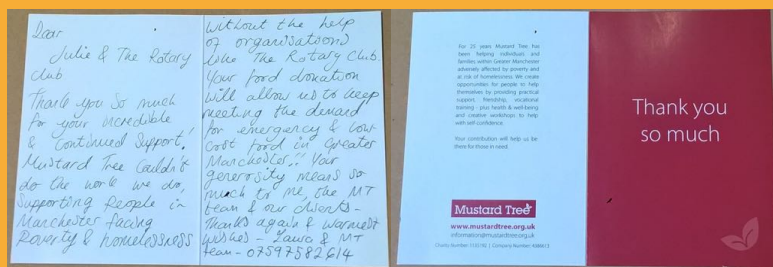 Dear
Julie & The Rotary
Club
Thank you so much
for your incredible
& Continued Support!
Mustard Tree Couldn't
do the work we do,
Supporting People in
Manchester facing
Poverty & homelessness
Without the help
of organisations
like The Rotary Club.
Your food donation
will allow us to keep
meeting the demand
for emergency & low
cost food in Greater
Manchester!! Your
generosity means so
much to me, the MT
team & our clients -
Thanks again & warmest
wishes - Laura & MT
team - 07597582614
For 25 years Mustard Tree has
been helping individuals and
families within Greater Manchester
adversely affected by poverty and
at risk of homelessness. We create
opportunities for people to help
themselves by providing practical
support, friendship, vocational
training - plus health & well-being
and creative workshops to help
with self confidence.
Your contribution will help us be
there for those in need.
Mustard Tree
www.mustardtree.org.uk
information@mustardtree.org.uk
Charity Number: | Company Number:
Thank you
so much